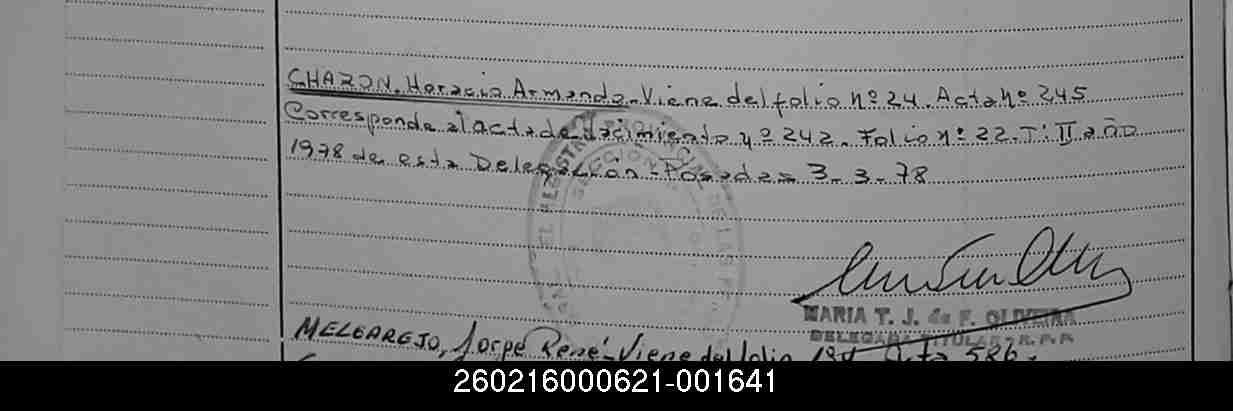 CHAZON, Horacio Armando - Viene del folio Nº 24. Acta Nº 245
Corresponde al acta de Nacimiento Nº 242. Folio Nº 22. T: II año
1978 de esta Delegación - Posadas 3-3-78
MARIA T. J. de F. OLIVEIRA
DELEGADA TITULAR - R. P. P.
MELGAREJO, Jorge René - Viene del folio Acta 586.
260216000621-001641